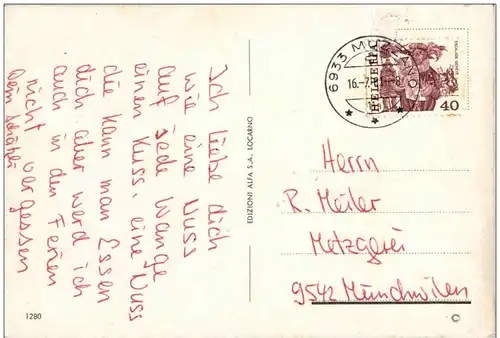 Ich liebe dich
wie eine Nuss
auf jede Wange
einen Kuss, eine Nuss
die kann man Essen
dich aber werd ich
auch in den Ferien
nicht vergessen
Dein Schätzli
EDIZIONI ALFA S.A. LOCARNO
6933 MUZZANO
16.-7.
HELVETIA
40
Herrn
R. Meiler
Metzgerei
9542 Münchwilen
1280
©